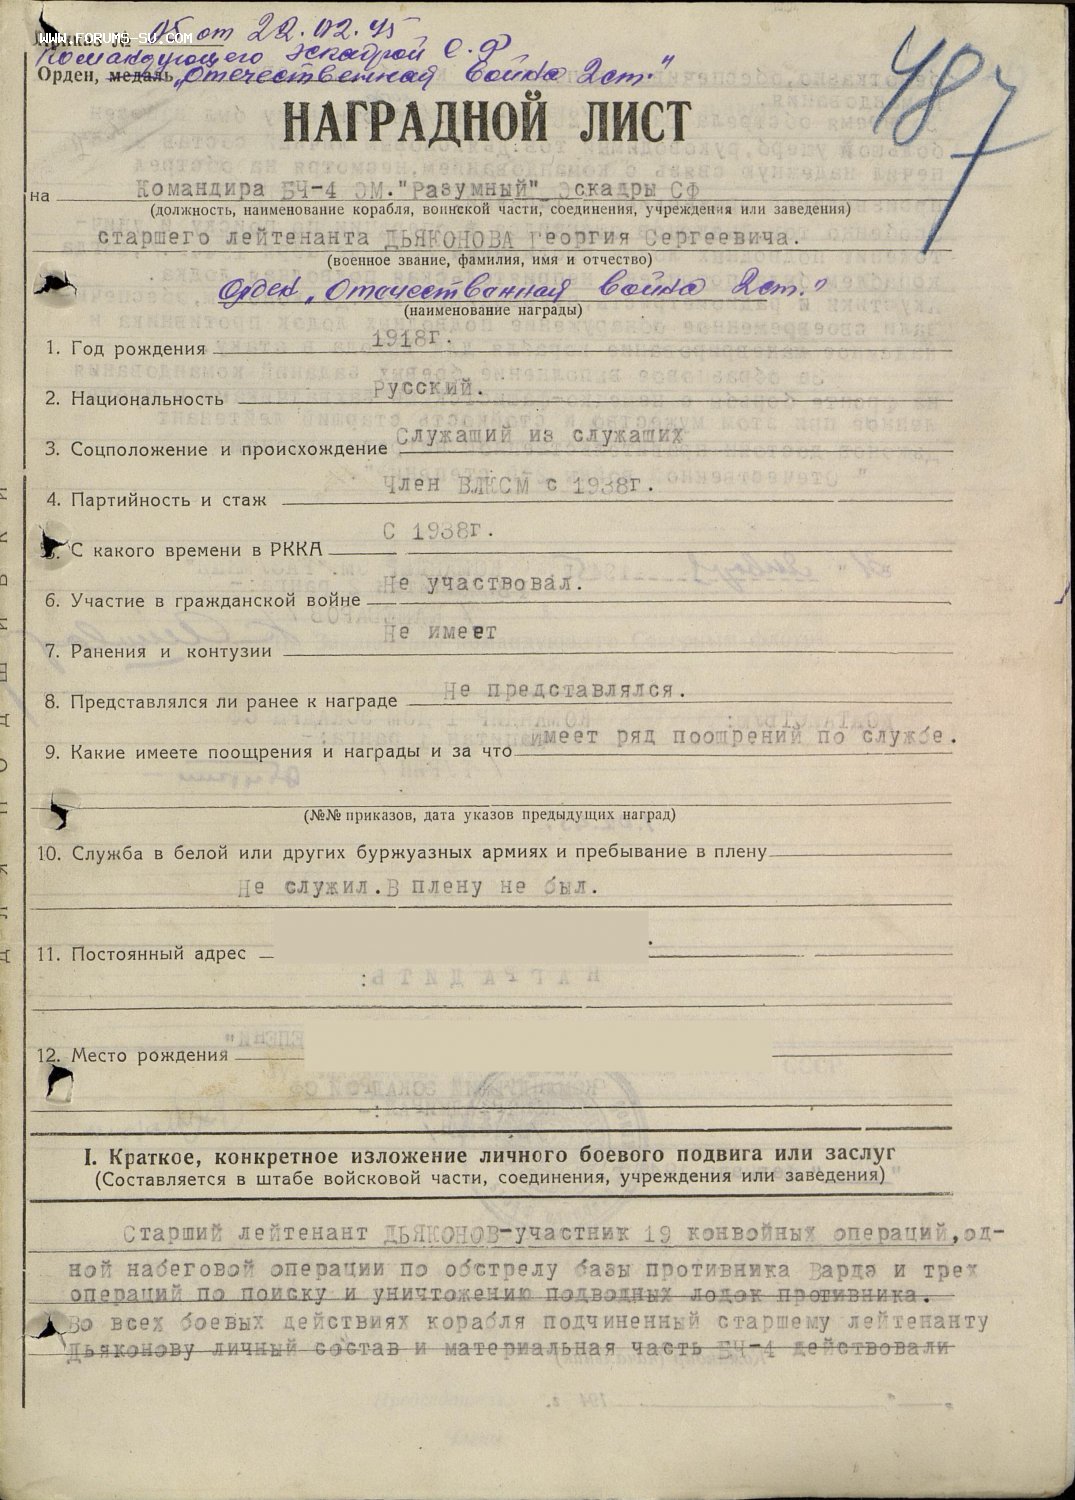 WWW.FORUMS-SU.COM
от 22.02.45
Командующего эскадрой С.Ф
Орден, медаль „Отечественная война 2ст."
487
НАГРАДНОЙ ЛИСТ
на Командира БЧ-4 ЭМ."Разумный" Эскадры СФ
(должность, наименование корабля, воинской части, соединения, учреждения или заведения)
старшего лейтенанта ДЬЯКОНОВА Георгия Сергеевича.
(военное звание, фамилия, имя и отчество)
Орден „Отечественная война 2ст."
(наименование награды)
1. Год рождения 1918г.
2. Национальность Русский.
3. Соцположение и происхождение Служащий из служащих
4. Партийность и стаж Член ВЛКСМ с 1938г.
5. С какого времени в РККА С 1938г.
6. Участие в гражданской войне Не участвовал.
7. Ранения и контузии Не имеет
8. Представлялся ли ранее к награде Не представлялся.
9. Какие имеете поощрения и награды и за что имеет ряд поощрений по службе.
(№№ приказов, дата указов предыдущих наград)
10. Служба в белой или других буржуазных армиях и пребывание в плену
Не служил. В плену не был.
11. Постоянный адрес
12. Место рождения
I. Краткое, конкретное изложение личного боевого подвига или заслуг
(Составляется в штабе войсковой части, соединения, учреждения или заведения)
Старший лейтенант ДЬЯКОНОВ-участник 19 конвойных операций,од-
ной набеговой операции по обстрелу базы противника Вардэ и трех
операций по поиску и уничтожению подводных лодок противника.
Во всех боевых действиях корабля подчиненный старшему лейтенанту
Дьяконову личный состав и материальная часть БЧ-4 действовали